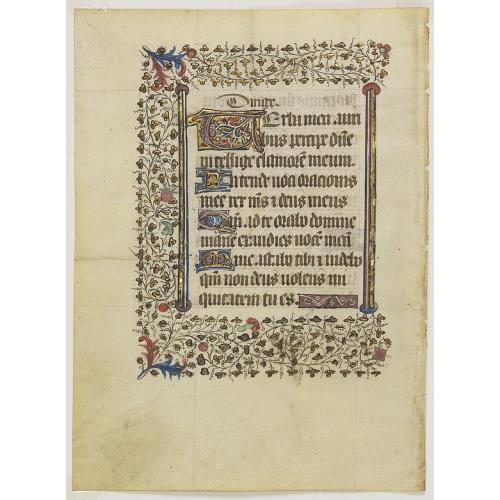 Dirige.
Verba mea auri
bus percipe dñe
intellige clamorē meum.
Intende uoci orationis
mee rex m̄s ⁊ deus meus
Qm̄. ad te orabo domine
mane exaudies uocē meā
Mane astabo tibi ⁊ uidebo
qm̄ non deus uolens ini
quitatem tu es.